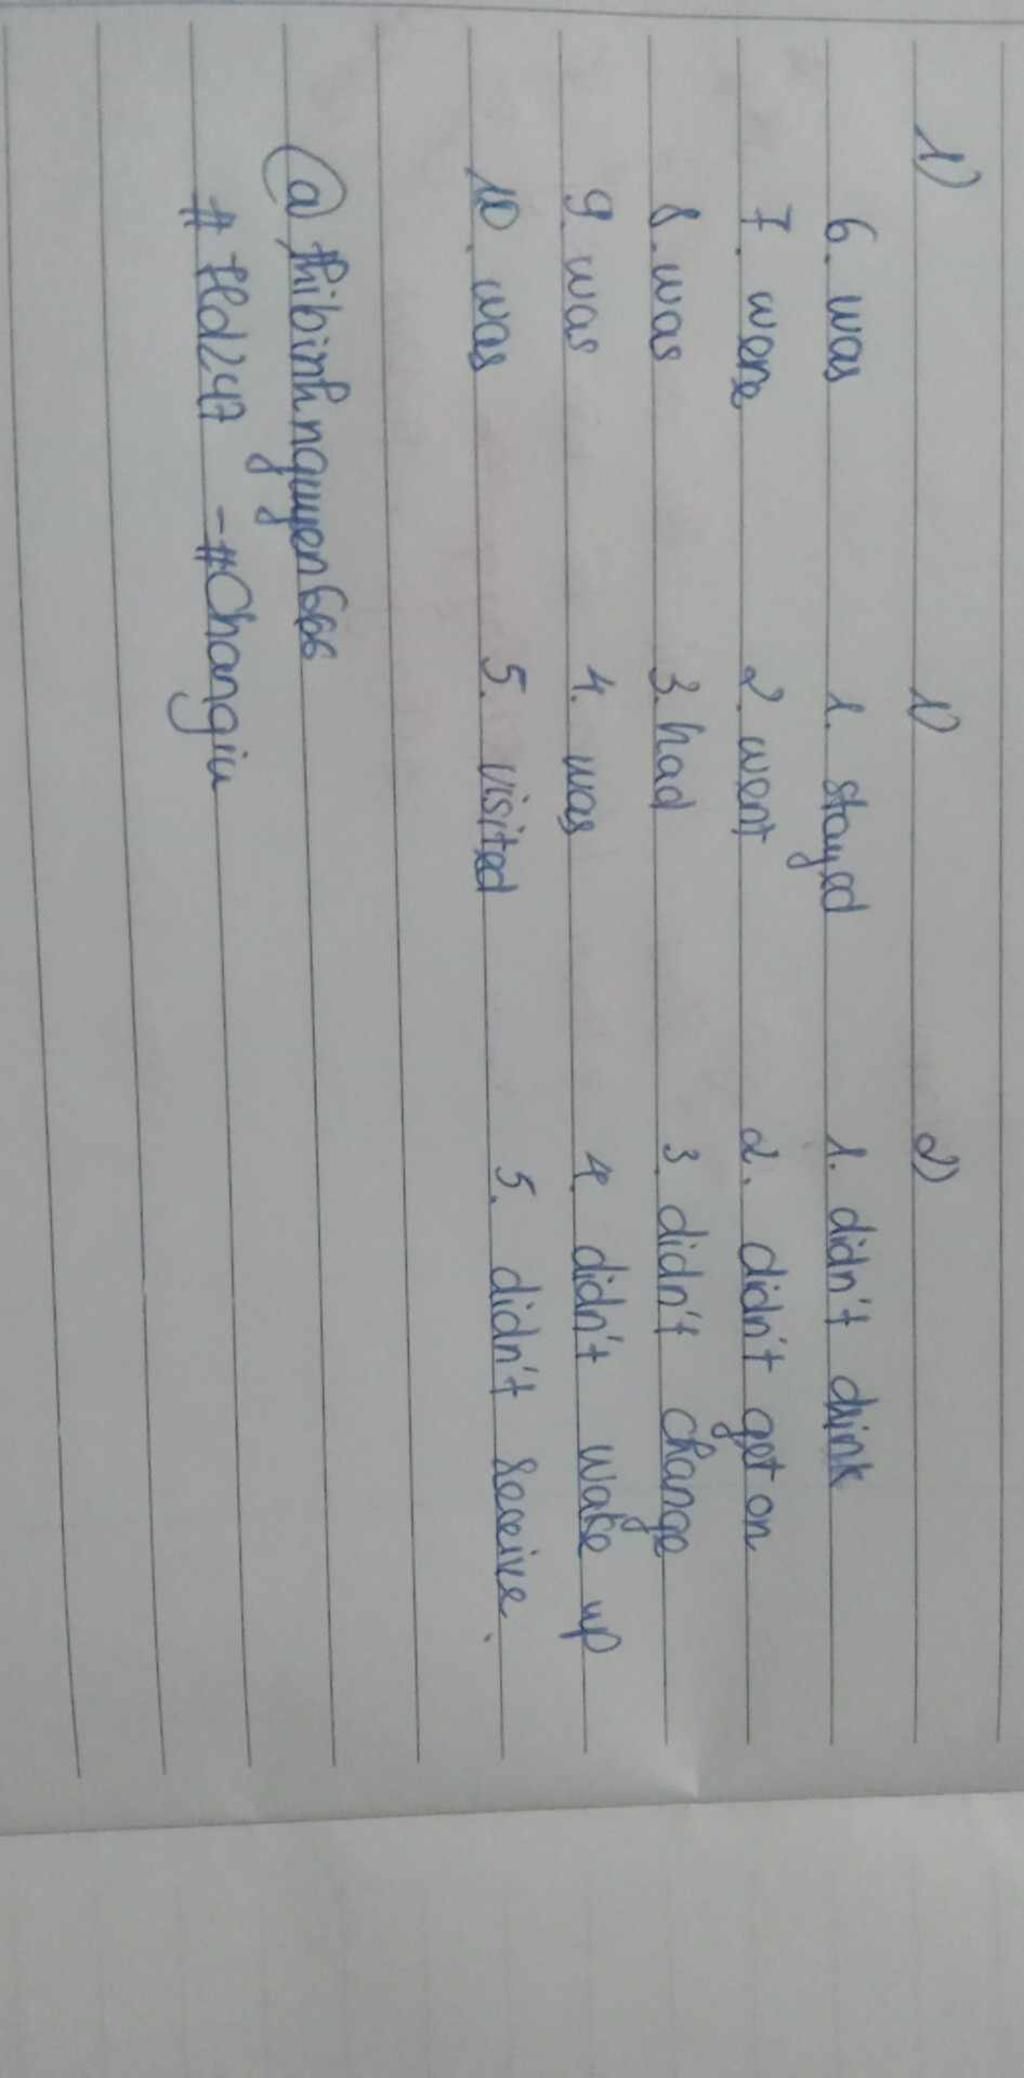 1) 1) 2)
6. was 1. stayed 1. didn't drink
7. were 2. went 2. didn't get on
8. was 3. had 3. didn't change
9. was 4. was 4. didn't wake up
10. was 5. visited 5. didn't receive.
@thibinhnguyen666
#Hd247 - #Changiu